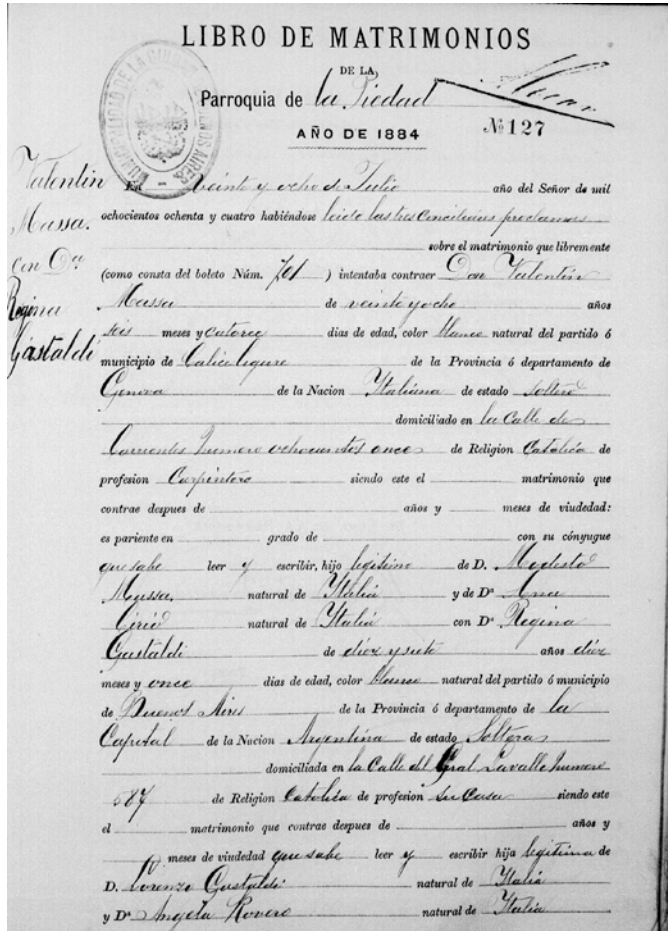 LIBRO DE MATRIMONIOS
DE LA
Parroquia de la Piedad
AÑO DE 1884
№ 127
MUNICIPALIDAD DE LA BUENOS AIRES
Valentin
Massa.
con Dª
Regina
Gastaldi
En veinte y ocho de Julio año del Señor de mil
ochocientos ochenta y cuatro habiéndose leido las tres conciliares proclamas
sobre el matrimonio que libremente
(como consta del boleto Núm. 701 ) intentaba contraer Don Valentin
Massa de veinte y ocho años
seis meses y catorce dias de edad, color blanco natural del partido ó
municipio de Calice ligure de la Provincia ó departamento de
Genova de la Nacion Italiana de estado soltero
domiciliado en la Calle de
Corrientes numero ochocientos once de Religion Catolica de
profesion Carpintero siendo este el matrimonio que
contrae despues de años y meses de viudedad:
es pariente en grado de con su cónyugue
que sabe leer y escribir, hijo legitimo de D. Modesto
Massa natural de Italia y de Dª Ana
natural de Italia con Dª Regina
Gastaldi de diez y siete años diez
meses y once dias de edad, color blanco natural del partido ó municipio
de Buenos Aires de la Provincia ó departamento de la
Capital de la Nacion Argentina de estado Soltera
domiciliada en la Calle del Gral Lavalle numero
587 de Religion Catolica de profesion su Casa siendo este
el matrimonio que contrae despues de años y
meses de viudedad que sabe leer y escribir hija legitima de
D. Lorenzo Gastaldi natural de Italia
y Dª Angela Rovero natural de Italia